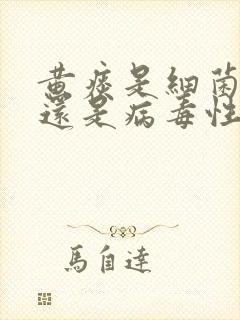 黄痰是細菌
還是病毒性
馬自達